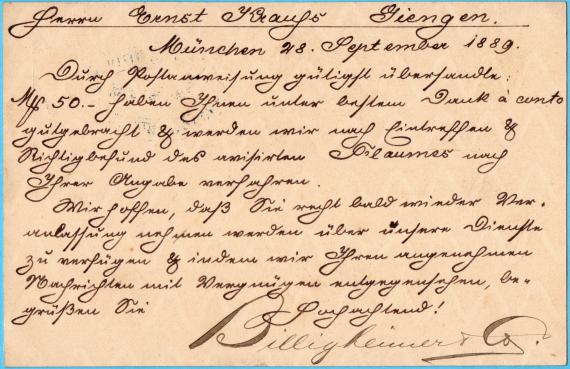 Herrn Ernst Krauss Giengen.
München 28. September 1889.
Durch Postanweisung gütigst übersandte:
Mk 50.- haben Ihnen unter bestem Dank à conto
gutgebracht & werden wir nach Eintreffen &
Richtigbefund des avisirten nach
Ihrer Angabe verfahren.
Wir hoffen, daß Sie recht bald wieder Ver-
anlassung nehmen werden über unsere Dienste
zu verfügen & indem wir Ihren angenehmen
Nachrichten mit Vergnügen entgegensehen, be-
grüßen Sie Hochachtend!
Billigheimer & Co.